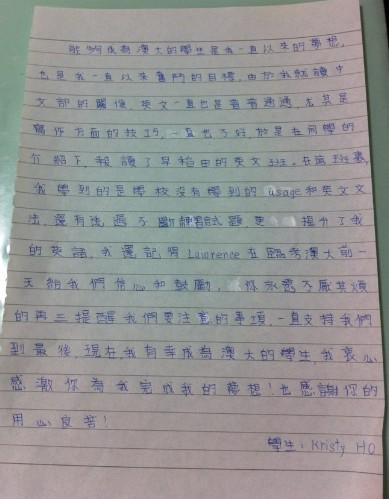 能夠成為澳大的學生是我一直以來的夢想,
也是我一直以來奮鬥的目標,由於我就讀中
文部的關係,英文一直也是普普通通,尤其是
寫作方面的技巧,一直也不好,於是在同學的
介紹下,報讀了早稻田的英文班。在這班裏,
我學到的是學校沒有學到的 usage和英文文
法,還有透過不斷練習試題,更 提升了我
的英語,我還記得Lawrence在臨考澳大前一
天給我們信心和鼓勵,你永遠不厭其煩
的再三提醒我們要注意的事項,一直支持我們
到最後,現在,我有幸成為澳大的學生,我衷心
感激你為我完成我的夢想!也感謝你的
用心良苦!
學生:Kristy HO